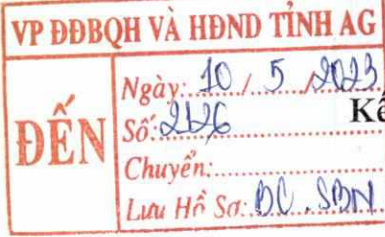 VP ĐĐBQH VÀ HĐND TỈNH AG
ĐẾN
Ngày: 10 / 5 / 2023
Số:
Kế
Chuyển:
Lưu Hồ Sơ: BC. SBN